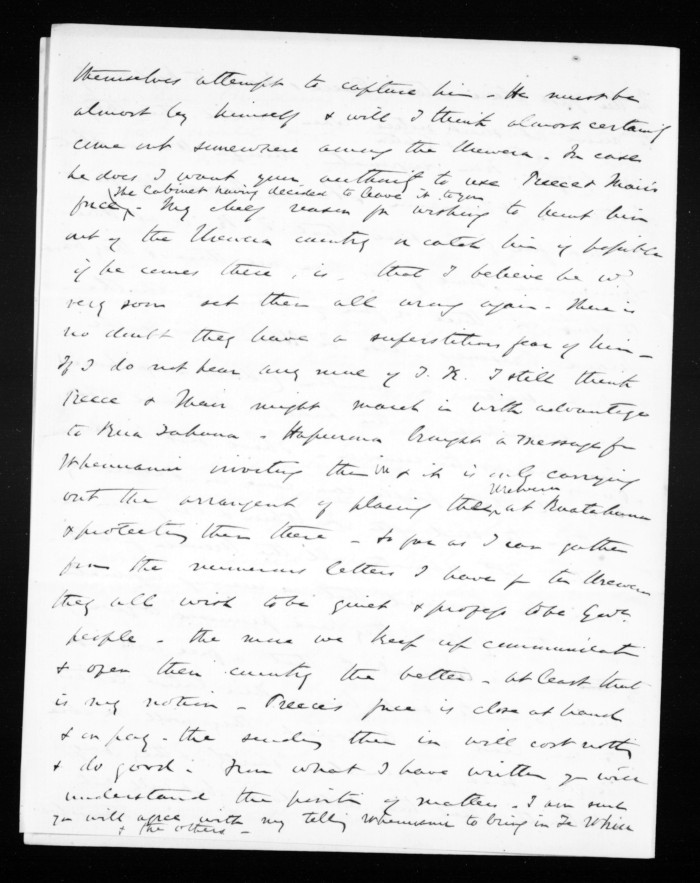 themselves attempt to capture him - He must be
almost by himself & will I think almost certainly
come out somewhere among the Urewera - In case
he does I want your authority to use Preece & Mair's
The Cabinet having decided to leave it to you
force - My chief reason for wishing to hunt him
out of the Urewera country or catch him if possible
if he comes there, is, that I believe he wd
very soon set them all wrong again - There is
no doubt they have a superstitious fear of him -
If I do not hear any more of T. K. I still think
Preece & Mair might march in with advantage
to Rua Tahuna - Hapurona brought a message fm
Whenuanui inviting them in & it is only carrying
Urewera
out the arrangent of placing the at Ruatahuna
& protecting them there - So far as I can gather
from the numerous letters I have fm the Urewera
they all wish to be quiet & profess to be Govt
people - The more we keep up communicati
& open their country the better - at least that
is my notion - Preece's force is close at hand
& on pay - the sending them in will cost nothg
& do good - From what I have written you will
understand the position of matters - I am sure
you will agree with my telling Whenuanui to bring in Te Whiu
& the others -